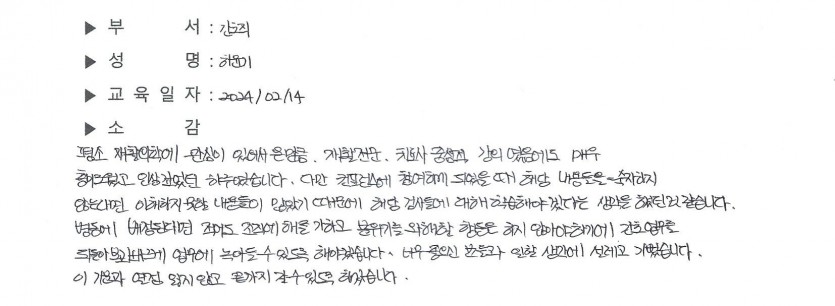 ▶ 부 서 : 간호직
▶ 성 명 : 허윤미
▶ 교 육 일 자 : 2024/02/14
▶ 소 감
평소 재활의학에 관심이 있어서 온만큼, 재활전문, 치료사 중심적, 강의 였음에도 매우
흥미로웠고 인상깊었던 하루였습니다. 다만 컨퍼런스에 참여하게 되었을 때 해당 내용들을 숙지하지
않는다면 이해하지 못할 내용들이 있었기 때문에 해당 검사들에 대해 학습해야겠다는 생각을 했던것 같습니다.
병동에 배정된다면 적어도 조직에 해를 가하고 분위기를 와해할 행동은 하지 않아야하기에 간호업무를
되돌아보며 빠르게 업무에 녹아들 수 있도록 해야겠습니다. 너무 좋으신 분들과 일할 생각에 설레고 기뻤습니다.
이 기분과 열정 잃지 않고 끝까지 갈 수 있도록 하겠습니다.